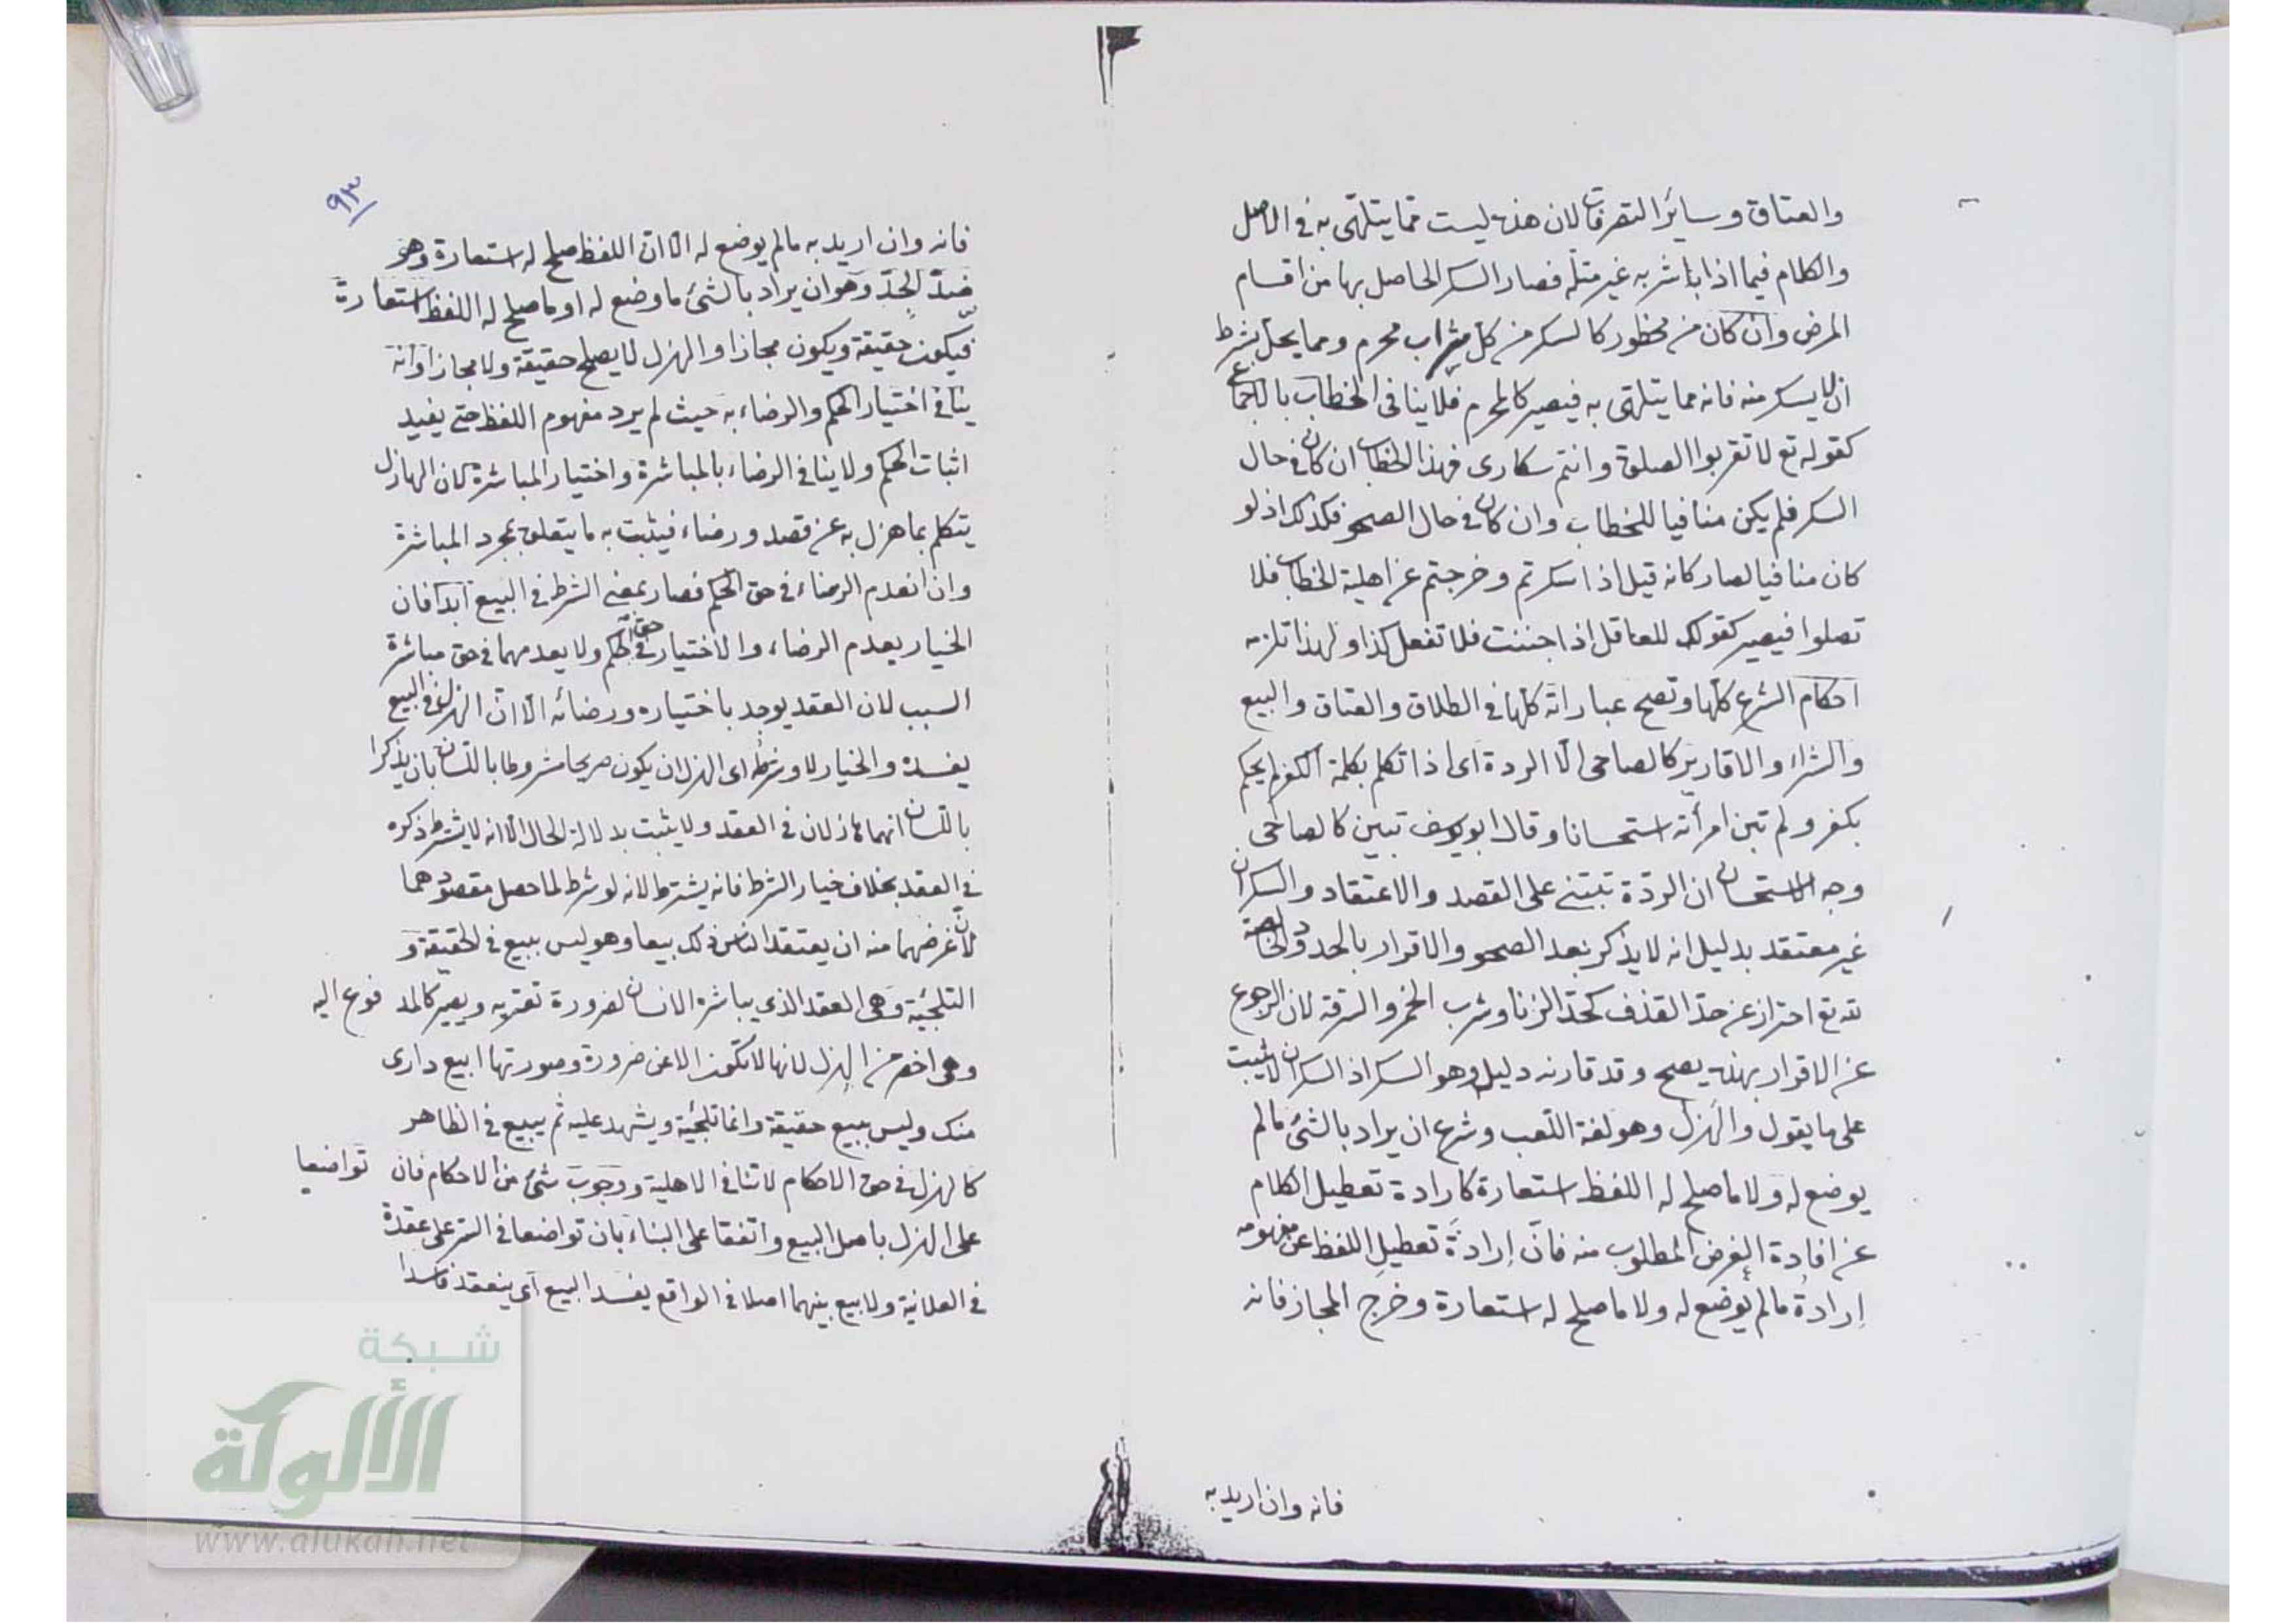 والعتاق وسائر التصرفات لان هذه ليست مما يتلهى به في الاصل
والكلام فيما اذا باشر به غير متله فصار السكر الحاصل بها من اقسام
المرض وان كان من محظور كالسكر من كل شراب محرم ومما يحل بشرط
ان لا يسكر منه فانه مما يتلهى به فيصير كالمحرم فلا ينافى الخطاب بالاجماع
كقوله تع لا تقربوا الصلوة وانتم سكارى فهذا الخطاب ان كان في حال
السكر فلم يكن منافيا للخطاب وان كان في حال الصحو فكذلك اذ لو
كان منافيا لصار كانه قيل اذا سكرتم وخرجتم عن اهلية الخطاب فلا
تصلوا فيصير كقولك للعاقل اذا جننت فلا تفعل كذا ولهذا تلزمه
احكام الشرع كلها وتصح عباراته كلها في الطلاق والعتاق والبيع
والشراء والاقارير كالصاحى الا الردة اى اذا تكلم بكلمة الكفر لم يحكم
بكفر ولم تبن امرأته استحسانا وقال ابو يوسف تبين كالصاحى
وجه الاستحسان ان الردة تبتنى على القصد والاعتقاد والسكران
غير معتقد بدليل انه لا يذكر بعد الصحو والاقرار بالحدود الخالصة
لله تع احتراز عن حد القذف كحد الزنا وشرب الخمر والسرقة لان الرجوع
عن الاقرار بهذه يصح وقد قارنه دليل وهو السكر اذ السكران لا يثبت
على ما يقول والهزل وهو لغة اللعب وشرع ان يراد بالشئ مالم
يوضع له ولا ما صلح له اللفظ استعارة كارادة تعطيل الكلام
عن افادة الغرض المطلوب منه فان إرادة تعطيل اللفظ عن مفهومه
إرادة مالم يوضع له ولا ما صلح له استعارة وخرج المجاز فانه
فانه وان اريد به
٩٣
فانه وان اريد به مالم يوضع له الا ان اللفظ صلح له استعارة وهو
ضد الجد وهو ان يراد بالشئ ما وضع له او ما صلح له اللفظ استعارة
فيكون حقيقة ويكون مجازا والهزل لا يصلح حقيقة ولا مجازا وانه
ينافى اختيار الحكم والرضاء به حيث لم يرد مفهوم اللفظ حتى يفيد
اثبات الحكم ولا ينافى الرضاء بالمباشرة واختيار المباشرة لان الهازل
يتكلم بما هزل به عن قصد ورضاء فيثبت به ما يتعلق بمجرد المباشرة
وان انعدم الرضاء في حق الحكم فصار بمعنى الشرط في البيع ابدا فان
الخيار يعدم الرضاء والاختيار في حق الحكم ولا يعدمهما في حق مباشرة
السبب لان العقد يوجد باختياره ورضائه الا ان الهزل في البيع
يفسده والخيار لا وشرطه اى الهزل ان يكون صريحا مشروطا باللسان بان يذكرا
باللسان انهما هازلان في العقد ولا يثبت بدلالة الحال الا انه لا يشترط ذكره
في العقد بخلاف خيار الشرط فانه يشترط لانه لو شرط لما حصل مقصودهما
لان غرضهما منه ان يعتقد الناس ذلك بيعا وهو ليس ببيع في الحقيقة و
التلجئة وهى العقد الذى يباشره الانسان لضرورة تعتريه ويصير كالمد فوع اليه
وهى اخص من الهزل لانها لا تكون الا عن ضرورة وصورتها ابيع دارى
منك وليس ببيع حقيقة وانما تلجئة ويشهد عليه ثم يبيع في الظاهر
كالهزل في حق الاحكام لا تنافى الاهلية ووجوب شئ من الاحكام فان تواضعا
على الهزل باصل البيع واتفقا على البناء بان تواضعا في السر على عقدة
في العلانية ولا بيع بينهما اصلا في الواقع يفسد البيع اى ينعقد فاسدا
شبكة
الألوكة
www.alukah.net